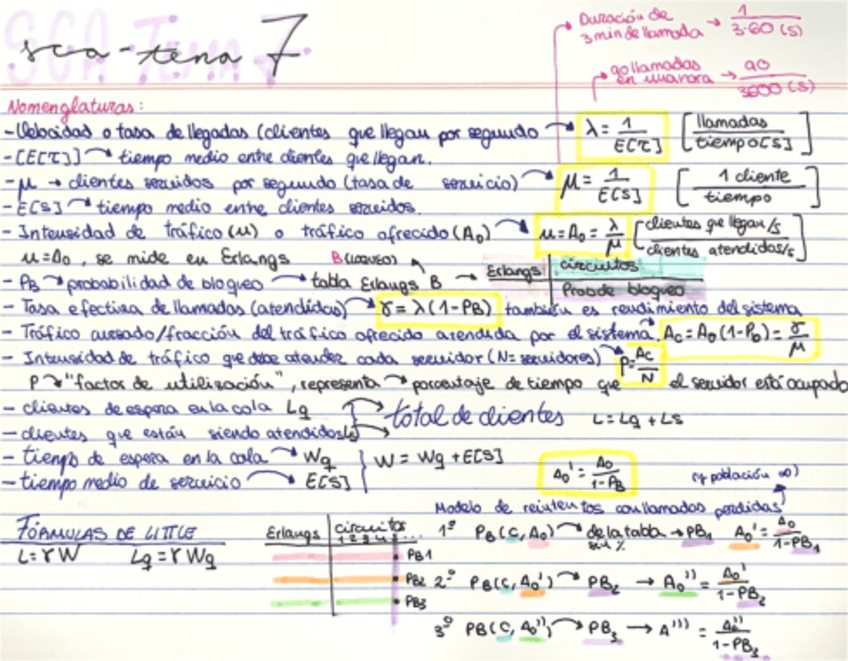 sca-tema 7
Duración de 3 min de llamada → 1/3·60 (s)
90 llamadas en una hora → 90/3600 (s)
Nomenglaturas:
- Velocidad o tasa de llegadas (clientes que llegan por segundo → λ = 1/E[τ] [llamadas/tiempo[s]]
- [E[τ]] → tiempo medio entre clientes que llegan.
- μ → clientes servidos por segundo (tasa de servicio) → μ = 1/E[S] [1 cliente/tiempo]
- E[S] → tiempo medio entre clientes servidos.
- Intensidad de tráfico (μ) o tráfico ofrecido (A₀) → μ = A₀ = λ/μ [clientes que llegan/s / clientes atendidos/s]
μ = A₀, se mide en Erlangs B (bloqueo)
- PB → probabilidad de bloqueo → tabla Erlangs B → Erlangs | circuitos
Prob de bloqueo
- Tasa efectiva de llamadas (atendidas) → γ = λ(1-PB) también es rendimiento del sistema
- Tráfico cursado/fracción del tráfico ofrecido atendida por el sistema. Ac = A₀(1-Pb) = γ/μ
- Intensidad de tráfico que debe atender cada servidor (N = servidores) → ρ = Ac/N
ρ → "factor de utilización", representa → porcentaje de tiempo que el servidor está ocupado
- clientes de espera en la cola Lq
- clientes que están siendo atendidos Ls
total de clientes L = Lq + Ls
- tiempo de espera en la cola → Wq
- tiempo medio de servicio → E[S]
W = Wq + E[S]
A₀' = A₀/1-PB
(y población ∞)
Modelo de reintentos con llamadas perdidas
FÓRMULAS DE LITTLE
L = γW Lq = γWq
Erlangs | circuitos
1 2 3 4 5 ...
PB1
PB2
PB3
1º PB(C, A₀) → de la tabla → PB₁ A₀' = A₀/1-PB₁
2º PB(C, A₀') → PB₂ → A₀'' = A₀'/1-PB₂
3º PB(C, A₀'') → PB₃ → A''' = A₀''/1-PB₃